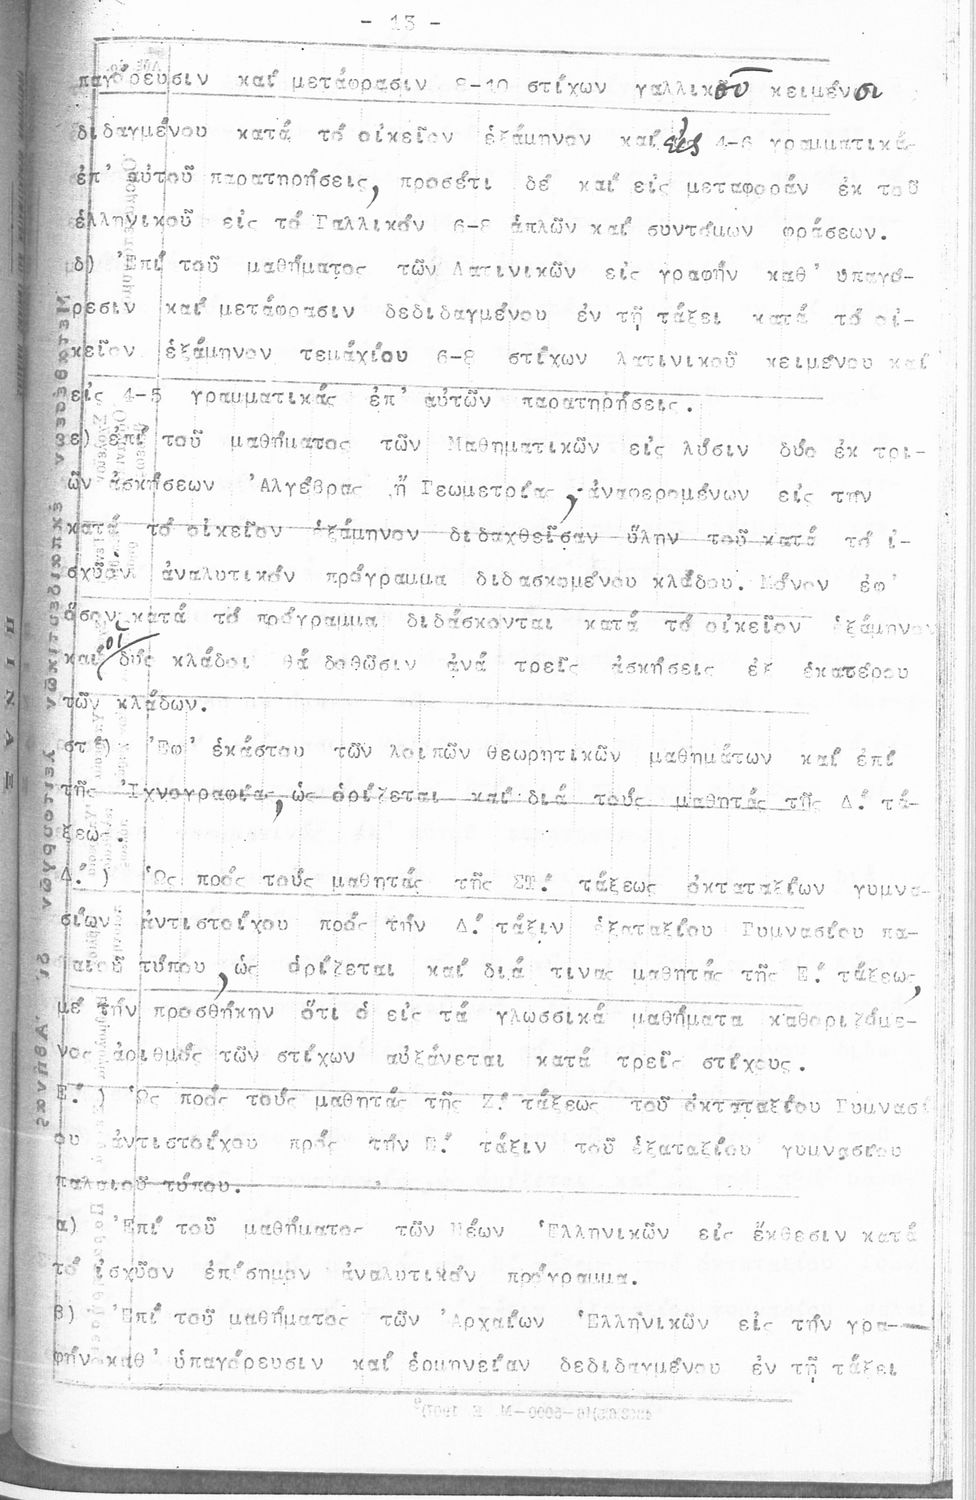 - 13 -
παγόρευσιν καί μετάφρασιν 8-10 στίχων γαλλικοῦ κειμένου
διδαγμένου κατά τό οἰκεῖον ἑξάμηνον καί εἰς 4-6 γραμματικά-
ἐπ' αὐτοῦ παρατηρήσεις, προσέτι δέ καί εἰς μεταφοράν ἐκ τοῦ
ἑλληνικοῦ εἰς τό Γαλλικόν 6-8 ἁπλῶν καί συντόμων φράσεων.
δ) Ἐπί τοῦ μαθήματος τῶν Λατινικῶν εἰς γραφήν καθ' ὑπαγό-
ρεσιν καί μετάφρασιν δεδιδαγμένου ἐν τῇ τάξει κατά τό οἰ-
κεῖον ἑξάμηνον τεμάχίου 6-8 στίχων λατινικοῦ κειμένου καί
εἰς 4-5 γραμματικάς ἐπ' αὐτῶν παρατηρήσεις.
ε) ἐπί τοῦ μαθήματος τῶν Μαθηματικῶν εἰς λύσιν δύο ἐκ τρι-
ῶν ἀσκήσεων Ἀλγέβρας ἤ Γεωμετρίας, ἀναφερομένων εἰς τήν
κατά τό οἰκεῖον ἑξάμηνον διδαχθεῖσαν ὕλην τοῦ κατά τό ἰ-
σχῦον ἀναλυτικόν πρόγραμμα διδασκομένου κλάδου. Μόνον ἐφ'
ὅσον κατά τό πρόγραμμα διδάσκονται κατά τό οἰκεῖον ἑξάμηνον
καί οἱ δύο κλάδοι θά δοθῶσιν ἀνά τρεῖς ἀσκήσεις ἐξ ἑκατέρου
τῶν κλάδων.
στ) Ἐφ' ἑκάστου τῶν λοιπῶν θεωρητικῶν μαθημάτων καί ἐπί
τῆς Ἰχνογραφίας, ὡς ὁρίζεται καί διά τούς μαθητάς τῆς Δ! τά-
ξεω .
Δ!) Ὡς πρός τούς μαθητάς τῆς ΣΤ! τάξεως ὀκταταξίων γυμνα-
σίων ἀντιστοίχου πρός τήν Δ! τάξιν ἑξαταξίου Γυμνασίου πα-
λαιοῦ τύπου, ὡς ὁρίζεται καί διά τινας μαθητάς τῆς Ε! τάξεως,
μέ τήν προσθήκην ὅτι ὁ εἰς τά γλωσσικά μαθήματα καθοριζόμε-
νος ἀριθμός τῶν στίχων αὐξάνεται κατά τρεῖς στίχους.
Ε!) Ὡς πρός τούς μαθητάς τῆς Ζ! τάξεως τοῦ ὀκταταξίου Γυμνασί
ου ἀντιστοίχου πρός τήν Ε! τάξιν τοῦ ἑξαταξίου γυμνασίου
παλαιοῦ τύπου.
α) Ἐπί τοῦ μαθήματος τῶν Νέων Ἑλληνικῶν εἰς ἔκθεσιν κατά
τό ἰσχῦον ἐπίσημον ἀναλυτικόν πρόγραμμα.
β) Ἐπί τοῦ μαθήματος τῶν Ἀρχαίων Ἑλληνικῶν εἰς τήν γρα-
φήν καθ' ὑπαγόρευσιν καί ἑρμηνείαν δεδιδαγμένου ἐν τῇ τάξει